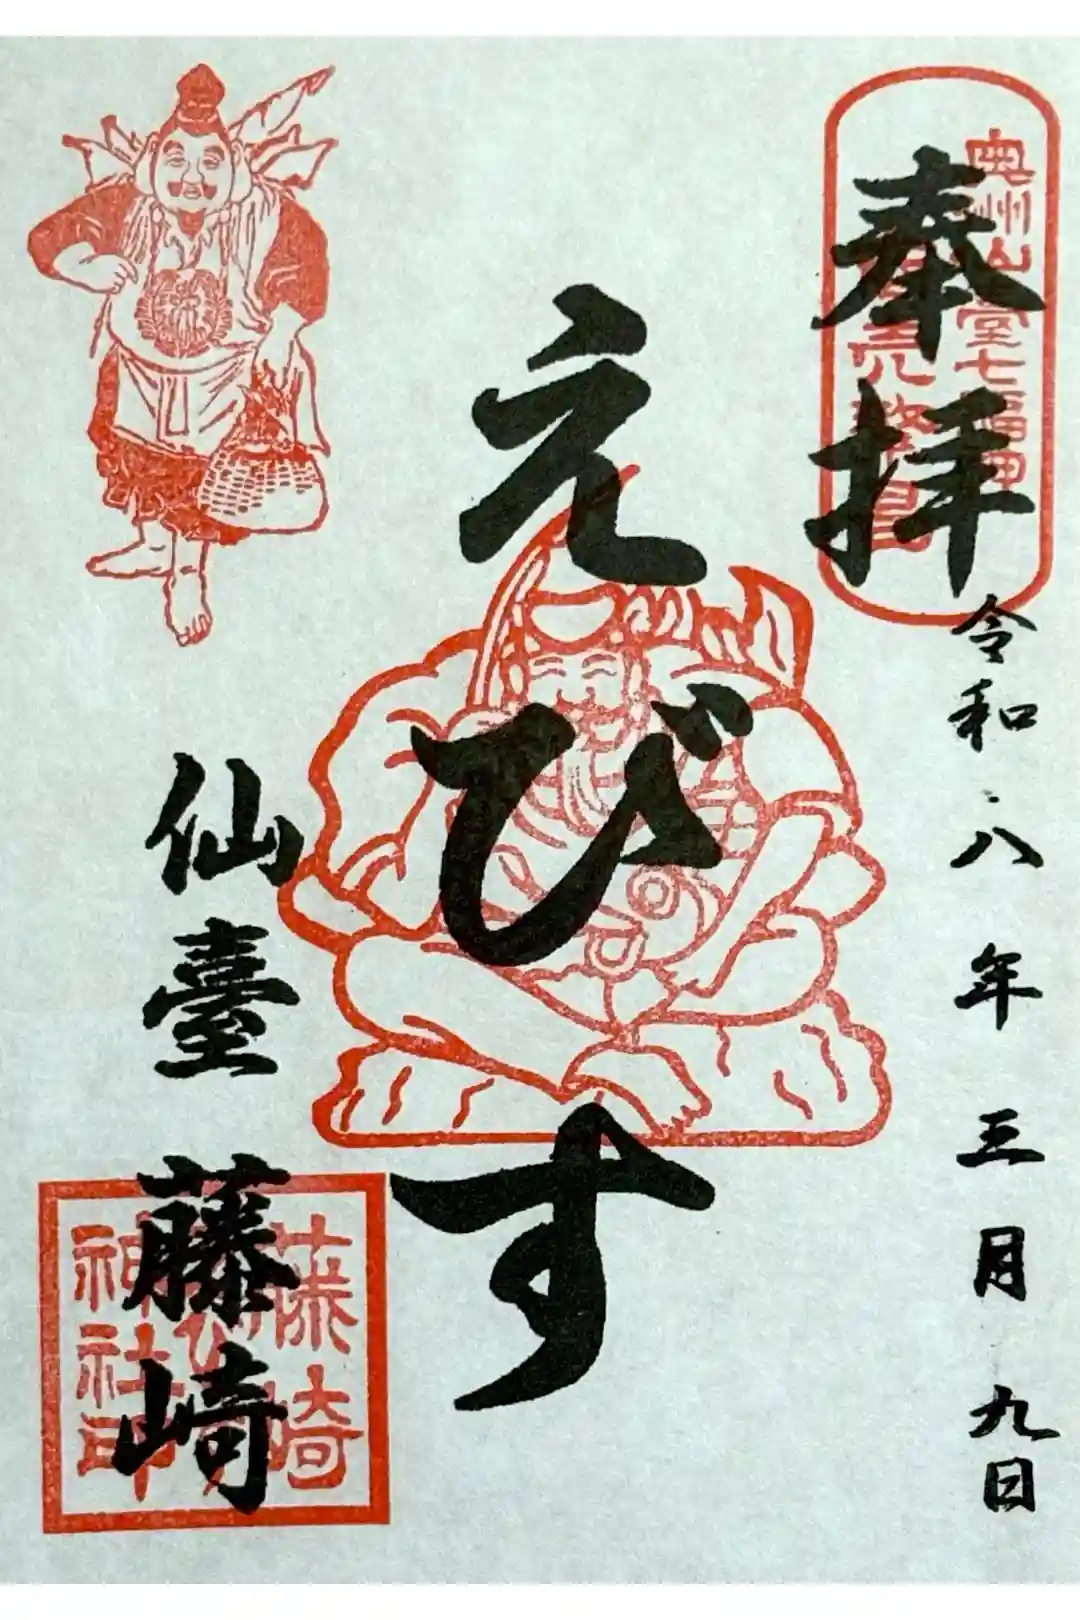 奉拝
奥州仙臺七福神
商売繁昌
令和八年三月九日
えびす
仙臺 藤崎
藤崎
神社印